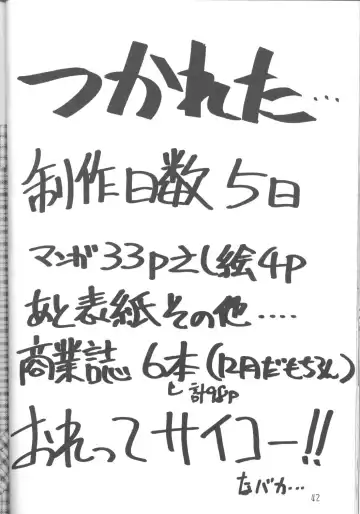 つかれた…
制作日数 5日
マンガ33pさし絵4p
あと表紙その他‥‥
商業誌 6本(12月だもちろん)
と計98p
おれってサイコー!!
なバカ…
42